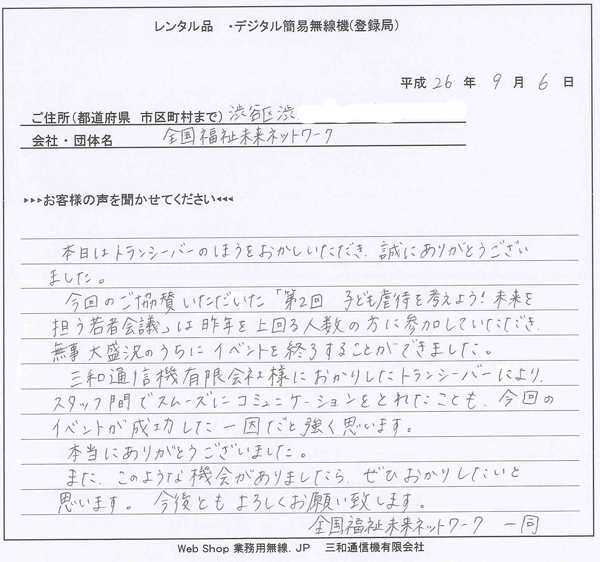 レンタル品 ・デジタル簡易無線機(登録局)
平成 26 年 9 月 6 日
ご住所(都道府県 市区町村まで) 渋谷区渋
会社・団体名 全国福祉未来ネットワーク
▸▸▸お客様の声を聞かせてください◂◂◂
本日はトランシーバーのほうをおかしいただき、誠にありがとうござい
ました。
今回のご協賛いただいた「第2回 子ども虐待を考えよう!未来を
担う若者会議」は昨年を上回る人数の方に参加していただき、
無事大盛況のうちにイベントを終了することができました。
三和通信機有限会社様におかりしたトランシーバーにより、
スタッフ間でスムーズにコミュニケーションをとれたことも、今回の
イベントが成功した一因だと強く思います。
本当にありがとうございました。
また、このような機会がありましたら、ぜひおかりしたいと
思います。今後ともよろしくお願い致します。
全国福祉未来ネットワーク 一同
Web Shop 業務用無線.JP 三和通信機有限会社